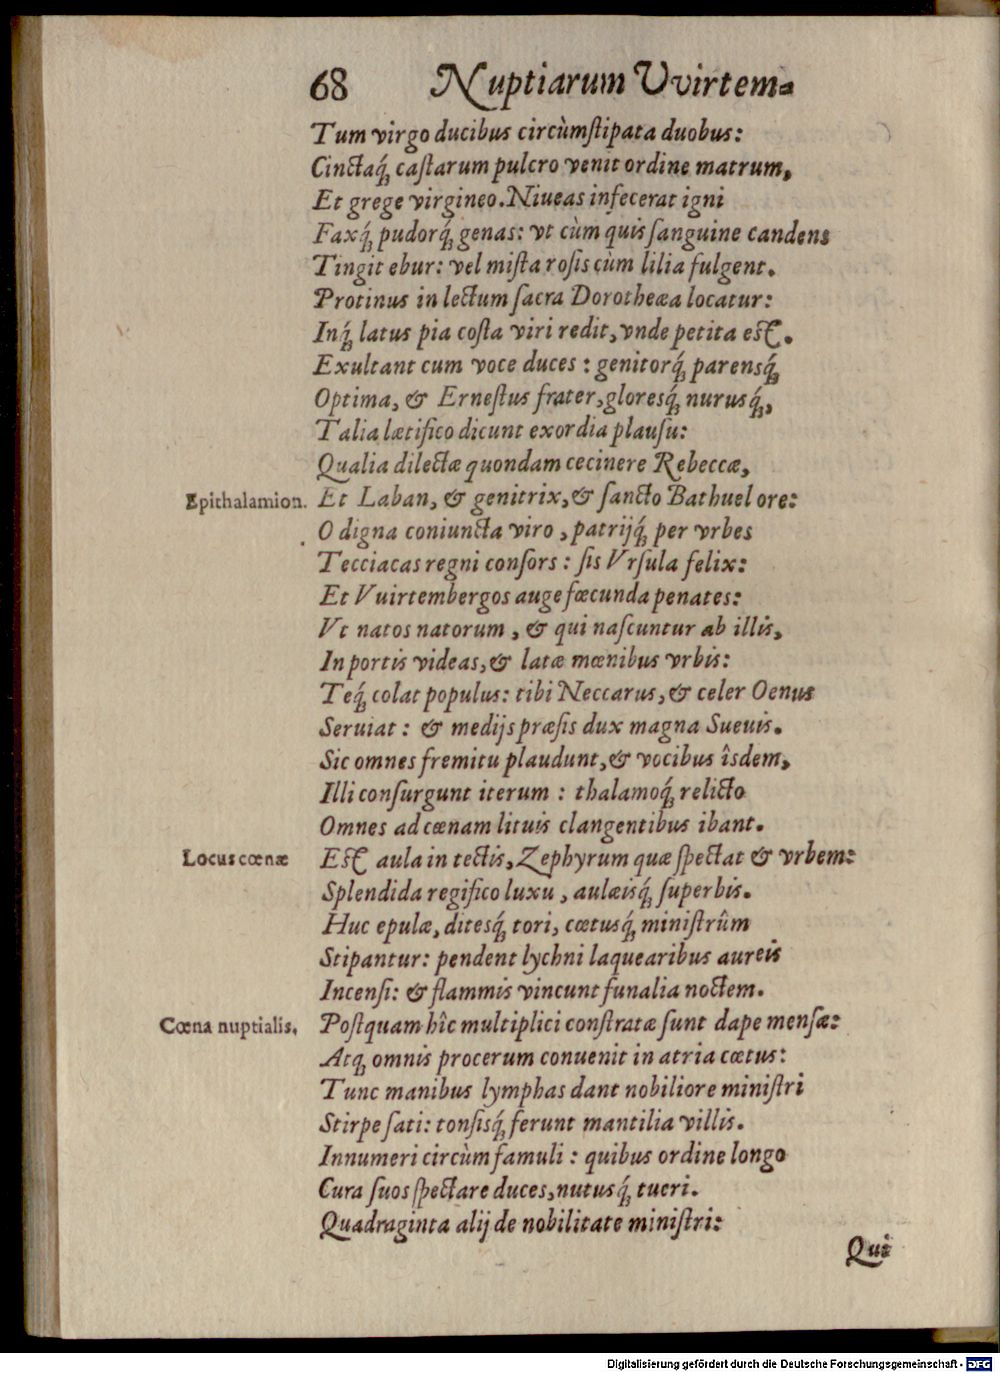 68 Nuptiarum Vvirtem-
Tum virgo ducibus circùmſtipata duobus:
Cinctaq́; caſtarum pulcro venit ordine matrum,
Et grege virgineo. Niueas infecerat igni
Faxq́; pudorq́; genas: vt cùm quis ſanguine candens
Tingit ebur: vel miſta roſis cùm lilia fulgent.
Protinus in lectum ſacra Dorotheæa locatur:
Inq́; latus pia coſta viri redit, vnde petita eſt.
Exultant cum voce duces: genitorq́; parensq́;
Optima, & Erneſtus frater, gloresq́; nurusq́;,
Talia lætifico dicunt exordia plauſu:
Qualia dilectæ quondam cecinere Rebeccæ,
Epithalamion. Et Laban, & genitrix, & ſancto Bathuel ore:
O digna coniuncta viro, patrijq́; per vrbes
Tecciacas regni conſors: ſis Vrſula felix:
Et Vuirtembergos auge fœcunda penates:
Vt natos natorum, & qui naſcuntur ab illis,
In portis videas, & latæ mœnibus vrbis:
Teq́; colat populus: tibi Neccarus, & celer Oenus
Seruiat: & medijs præſis dux magna Sueuis.
Sic omnes fremitu plaudunt, & vocibus îsdem,
Illi conſurgunt iterum: thalamoq́; relicto
Omnes ad cœnam lituis clangentibus ibant.
Locus cœnæ Eſt aula in tectis, Zephyrum quæ ſpectat & vrbem:
Splendida regifico luxu, aulæisq́; ſuperbis.
Huc epulæ, ditesq́; tori, cœtusq́; miniſtrûm
Stipantur: pendent lychni laquearibus aureis
Incenſi: & flammis vincunt funalia noctem.
Cœna nuptialis. Poſtquam hîc multiplici conſtratæ ſunt dape menſæ:
Atq; omnis procerum conuenit in atria cœtus:
Tunc manibus lymphas dant nobiliore miniſtri
Stirpe ſati: tonſisq́; ferunt mantilia villis.
Innumeri circùm famuli: quibus ordine longo
Cura ſuos ſpectare duces, nutusq́; tueri.
Quadraginta alij de nobilitate miniſtri:
Qui
Digitalisierung gefördert durch die Deutsche Forschungsgemeinschaft - DFG